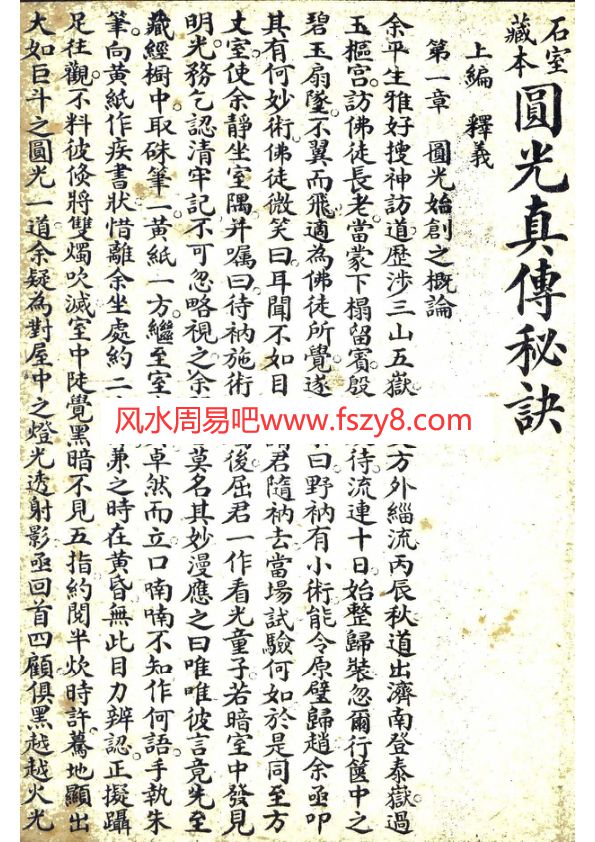 石室藏本
圓光真傳秘訣
上編 釋義
第一章 圓光始創之概論
余平生雅好搜神訪道歷涉三山五嶽方外緇流丙辰秋道出濟南登泰嶽過
玉樞宮訪佛徒長老當蒙下榻留賓殷待流連十日始整歸裝忽爾行篋中之
碧玉扇墜不翼而飛適為佛徒所覺遂曰野衲有小術能令原璧歸趙余亟叩
其有何妙術佛徒微笑曰耳聞不如目君隨衲去當場試驗何如於是同至方
丈室使余靜坐室隅并囑曰待衲施術後屈君一作看光童子若暗室中發見
明光務乞認清牢記不可忽略視之余莫名其妙漫應之曰唯唯彼言竟先至
藏經櫥中取硃筆一黃紙一方繼至室卓然而立口喃喃不知作何語手執朱
筆向黃紙作疾書狀惜離余坐處約二弟之時在黃昏無此目力辨認正擬躡
足往觀不料彼倏將雙燭吹滅室中陡覺黑暗不見五指約閱半炊時許驀地顯出
大如巨斗之圓光一道余疑為對屋中之燈光透射影亟回首四顧俱黑越越火光
风水周易吧www.fszy8.com